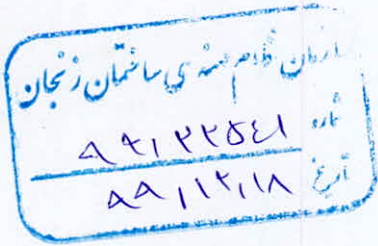 سازمان نظام مهندسی ساختمان زنجان
شماره
تاریخ ۹۹/۱۲/۱۸